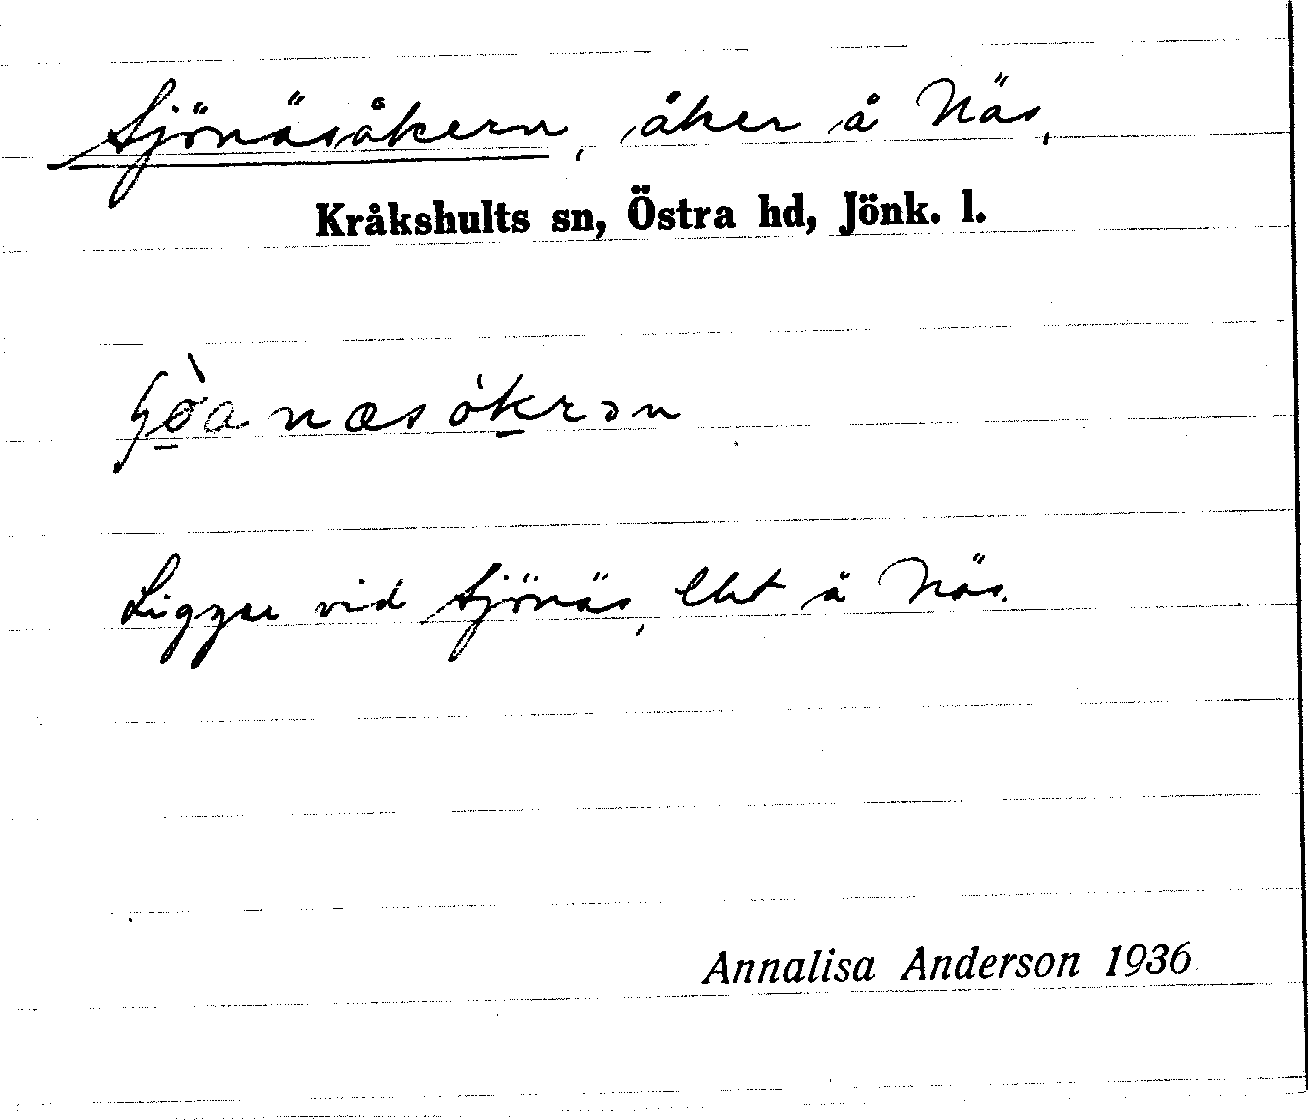 Sjönäsåkern, åker å Näs,
Kråkshults sn, Östra hd, Jönk. l.
Ligger vid Sjönäs, lht å Näs.
Annalisa Anderson 1936